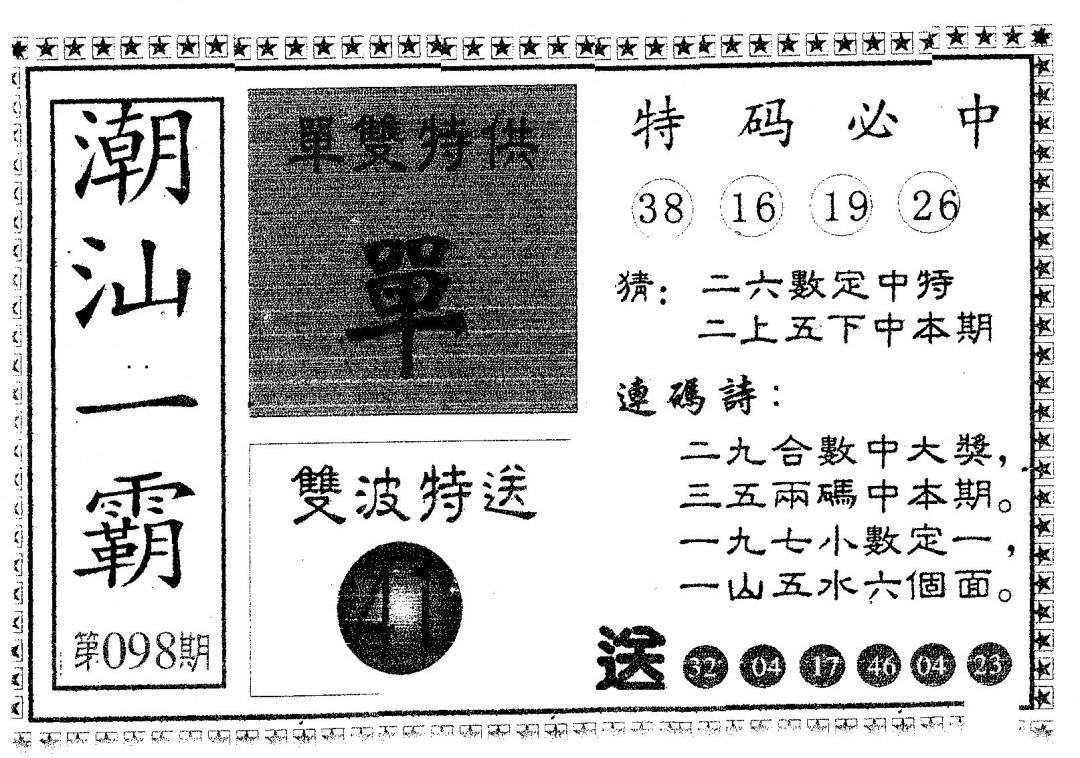 潮汕一霸
第098期
單雙特供
單
雙波特送
特码必中
38 16 19 26
猜：二六數定中特
二上五下中本期
連碼詩：
二九合數中大獎，
三五兩碼中本期。
一九七小數定一，
一山五水六個面。
送 32 04 17 46 04 23